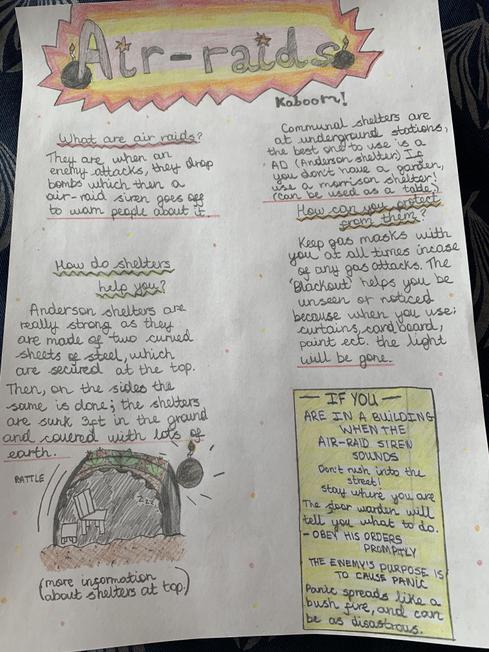 Air-raids
Kaboom!
What are air raids?
They are when an
enemy attacks, they drop
bombs which then a
air-raid siren goes off
to warn people about it.
How do shelters
help you?
Anderson shelters are
really strong as they
are made of two curved
sheets of steel, which
are secured at the top.
Then, on the sides the
same is done; the shelters
are sunk 3ft in the ground
and covered with lots of
earth.
RATTLE
zzz
(more information
about shelters at top.)
Communal shelters are
at underground stations,
the best one to use is a
AD (Anderson shelter) If
you don't have a garden,
use a morrison shelter!
(can be used as a table)
How can you protect
from them?
Keep gas masks with
you at all times incase
of any gas attacks. The
'Blackout' helps you be
unseen or noticed
because when you use;
curtains, cardboard,
paint ect. the light
will be gone.
— IF YOU —
ARE IN A BUILDING
WHEN THE
AIR-RAID SIREN
SOUNDS
Don't rush into the
street!
stay where you are
The door warden will
tell you what to do.
- OBEY HIS ORDERS
PROMPTLY
THE ENEMY'S PURPOSE IS
TO CAUSE PANIC
Panic spreads like a
bush fire, and can
be as disastrous.